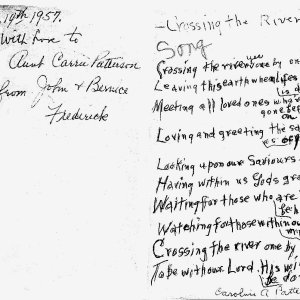 19th 1957.
With love to
Aunt Carrie Patterson
from John & Bernice
Frederick
Crossing the River
Song
Crossing the river yes one by one
Leaving this earth when life's
is d
Meeting all loved ones who've
gone
on
Loving and greeting the sa
as of
Looking upon our Saviours
Having within us Gods gra
Waiting for those who are
be h
Watching for those within ou
mi
Crossing the river one by
To be with our Lord. His wi
be do
Caroline A Patte